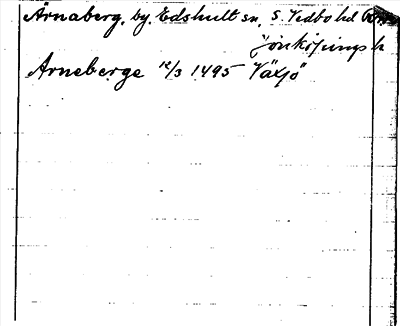 Årnaberg, by, Edshult sn. S. Vedbo hd
Jönköpings l
Arneberge 12/3 1495 Växjö